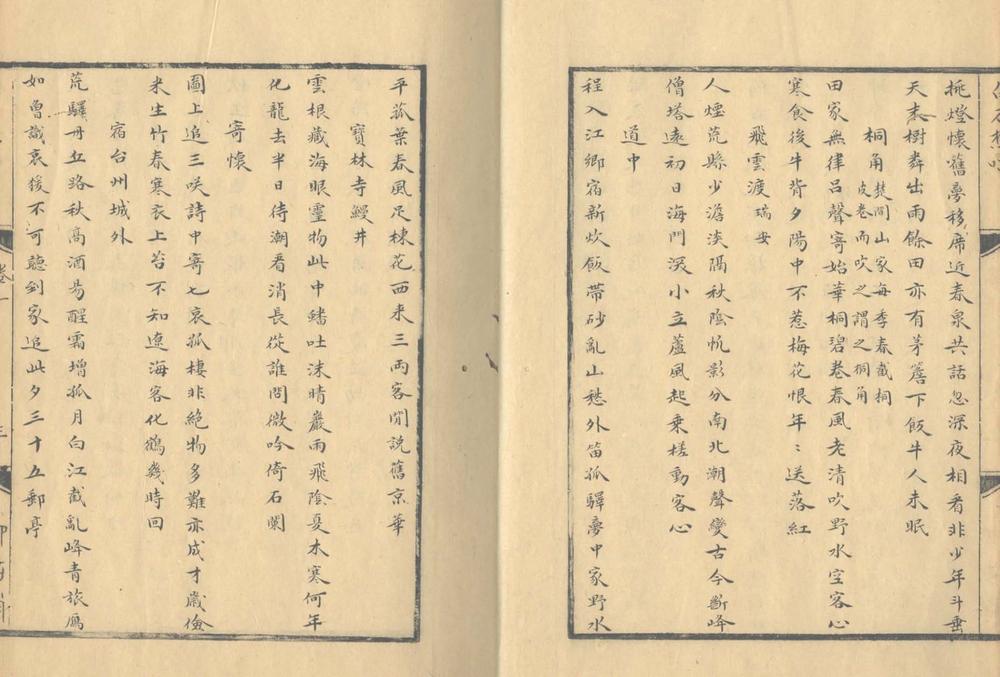 挑燈懷舊夢移席近春泉共話忽深夜相看非少年斗垂
天素樹粦出雨餘田亦有茅簷下飯牛人未眠
桐角楚間山家每季春截桐
皮卷而吹之謂之桐角
田家無律呂聲寄始華桐碧卷春風老清吹野水空客心
寒食後牛背夕陽中不惹梅花恨年〻送落紅
飛雲渡瑞安
人煙荒縣少澹淡隔秋陰帆影分南北潮聲變古今斷峰
僧塔遠初日海門深小立蘆風起乗槎動客心
道中
程入江鄉宿新炊飯帶砂亂山愁外笛孤驛夢中家野水
平菰葉春風足楝花西来三兩客閒説舊京華
寶林寺鰻井
雲根藏海眼靈物此中蟠吐沫晴巖雨飛陰夏木寒何年
化龍去半日待潮看消長從誰問微吟倚石闌
寄懷
圖上追三咲詩中寄七哀孤棲非絶物多難亦成才歲儉
米生竹春寒衣上苔不知遼海客化鶴幾時回
宿台州城外
荒驛丹丘路秋高酒昜醒霜增孤月白江截亂峰青旅鴈
如曾識哀猨不可聼到家追此夕三十五郵亭
卷一